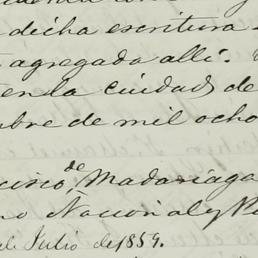 dicha escritura
agregada allí.
en la ciudad de
bre de mil ocho
cisco de Madariaga
no Nacional y Pú
de Julio de 1859.